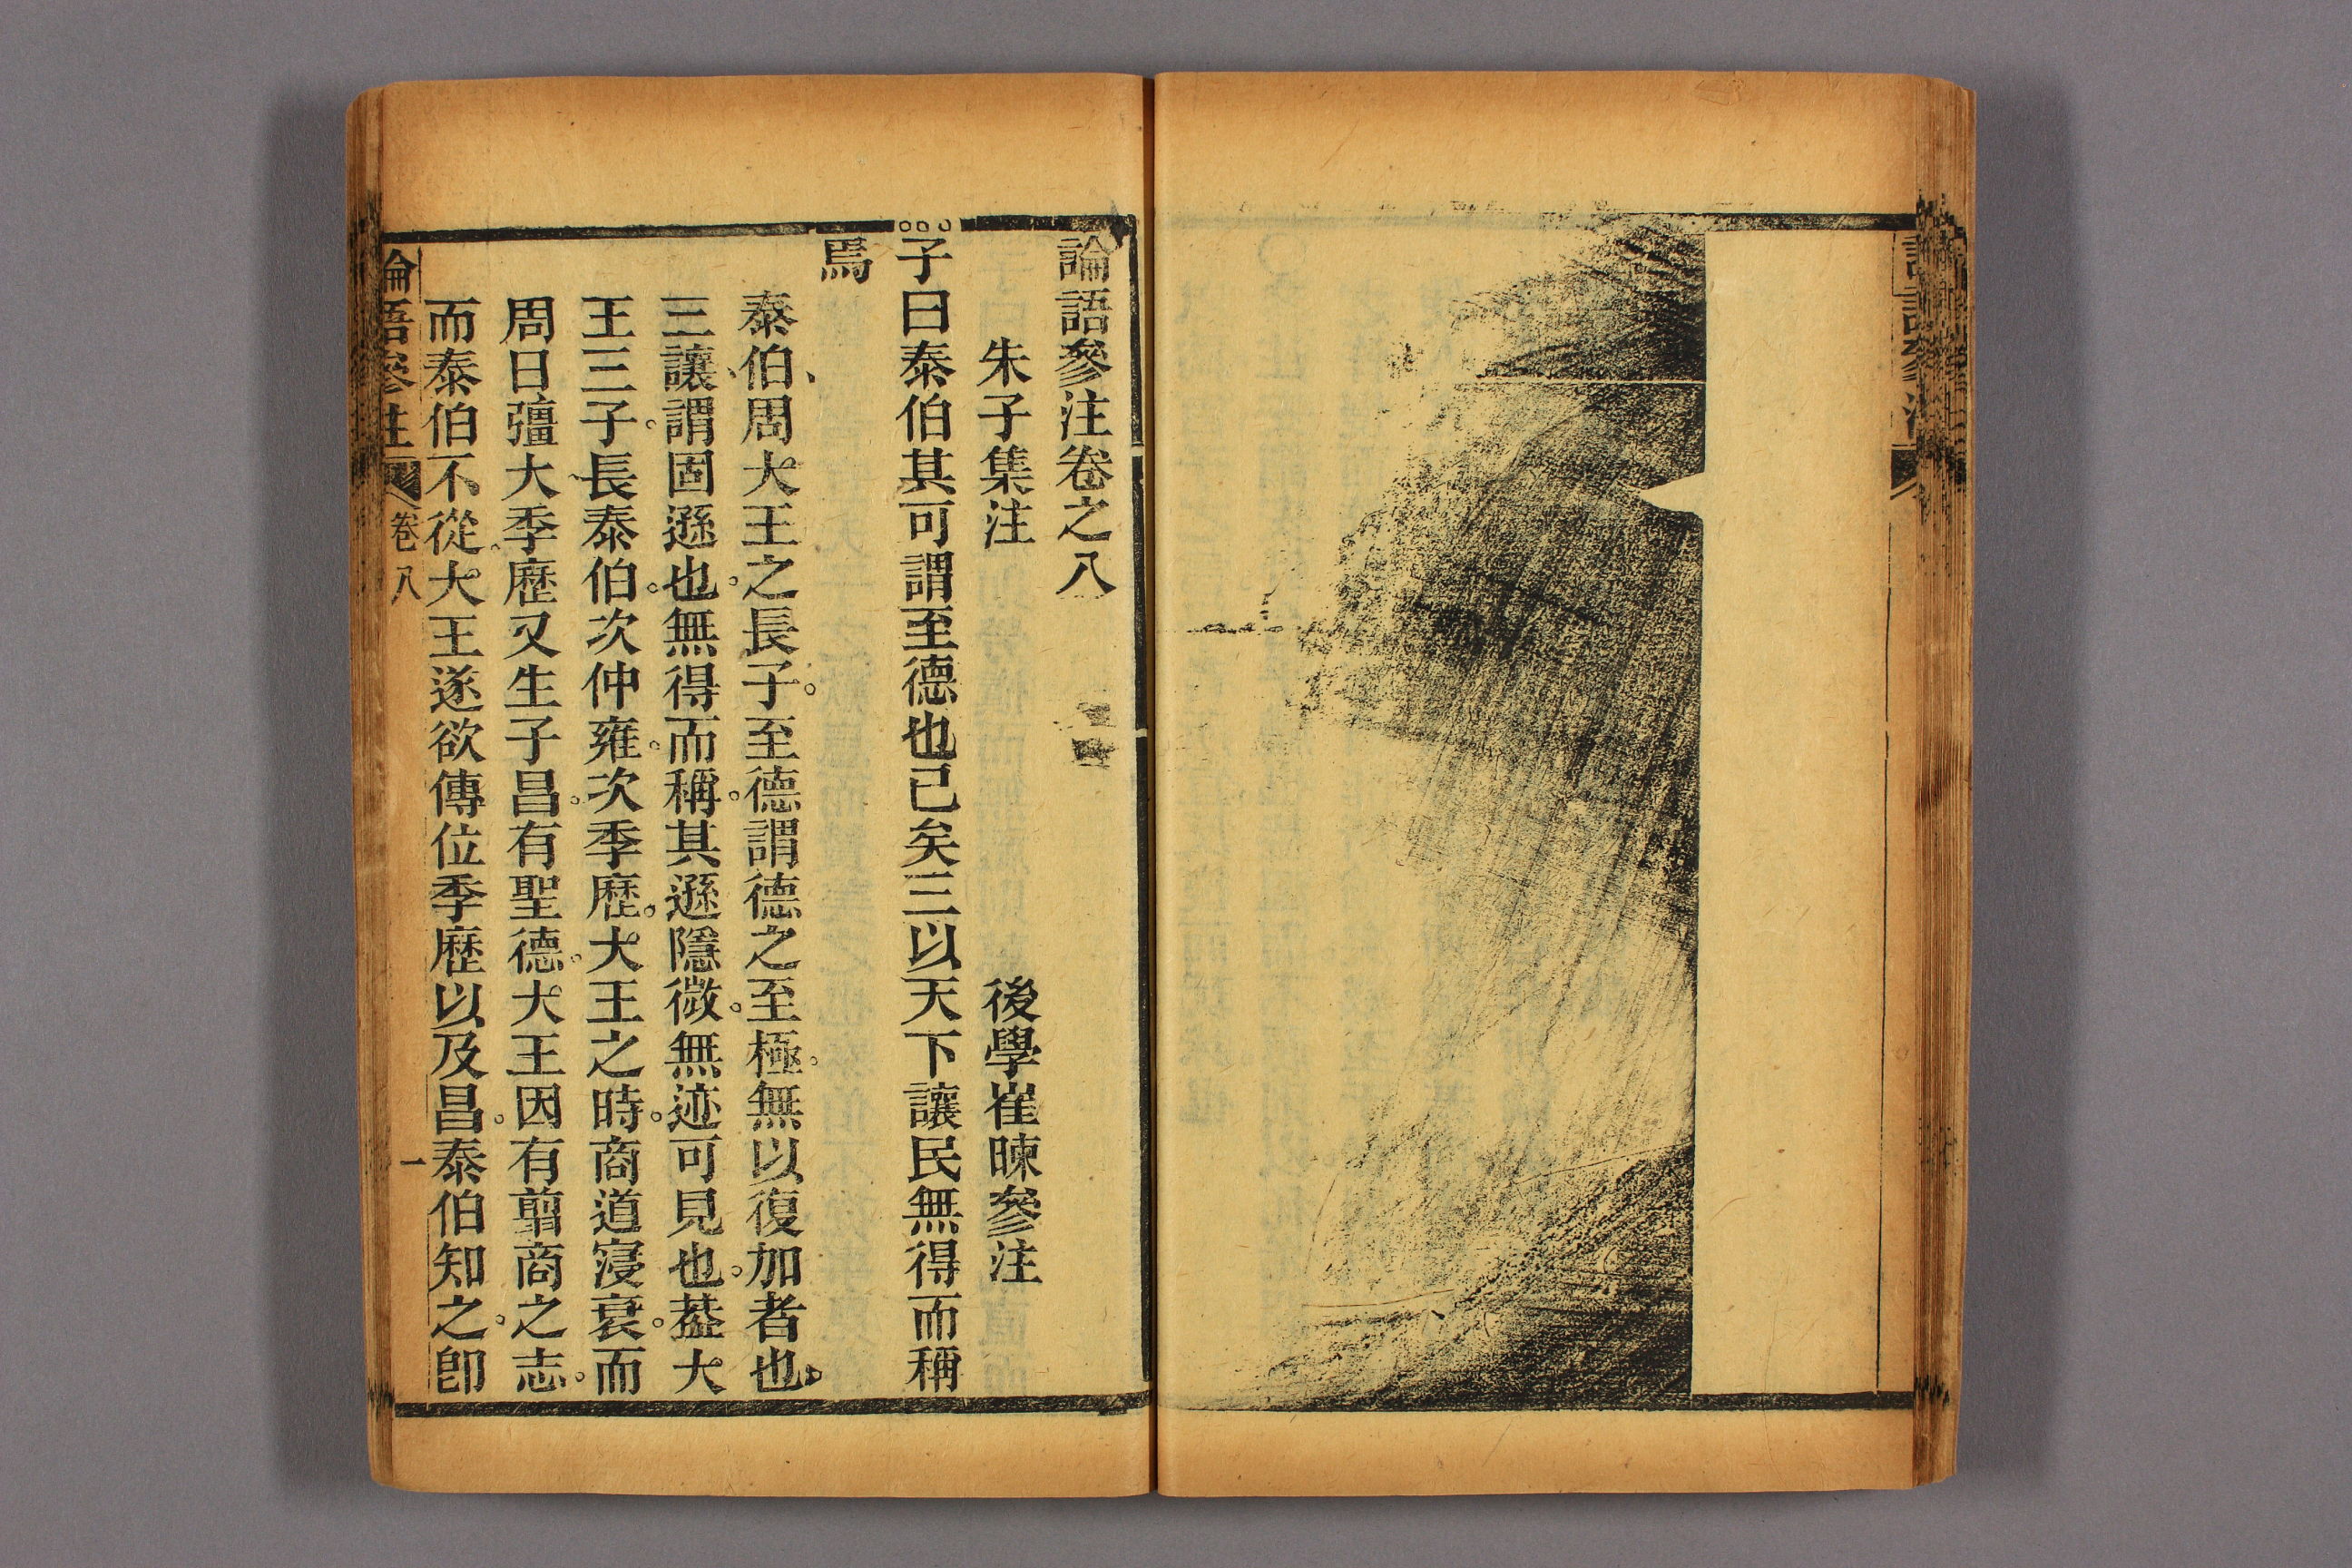 論語參注卷之八
朱子集注　後學崔暕參注
子曰泰伯其可謂至德也已矣三以天下讓民無得而稱
焉
泰伯周大王之長子。至德謂德之至極。無以復加者也
三讓謂固遜也。無得而稱。其遜隱微。無迹可見也。葢大
王三子。長泰伯。次仲雍。次季歷。大王之時。商道寖衰。而
周日彊大季歷又生子昌。有聖德。大王因有翦商之志。
而泰伯不從。大王遂欲傳位季歷以及昌。泰伯知之。卽
論語參注
卷八
一